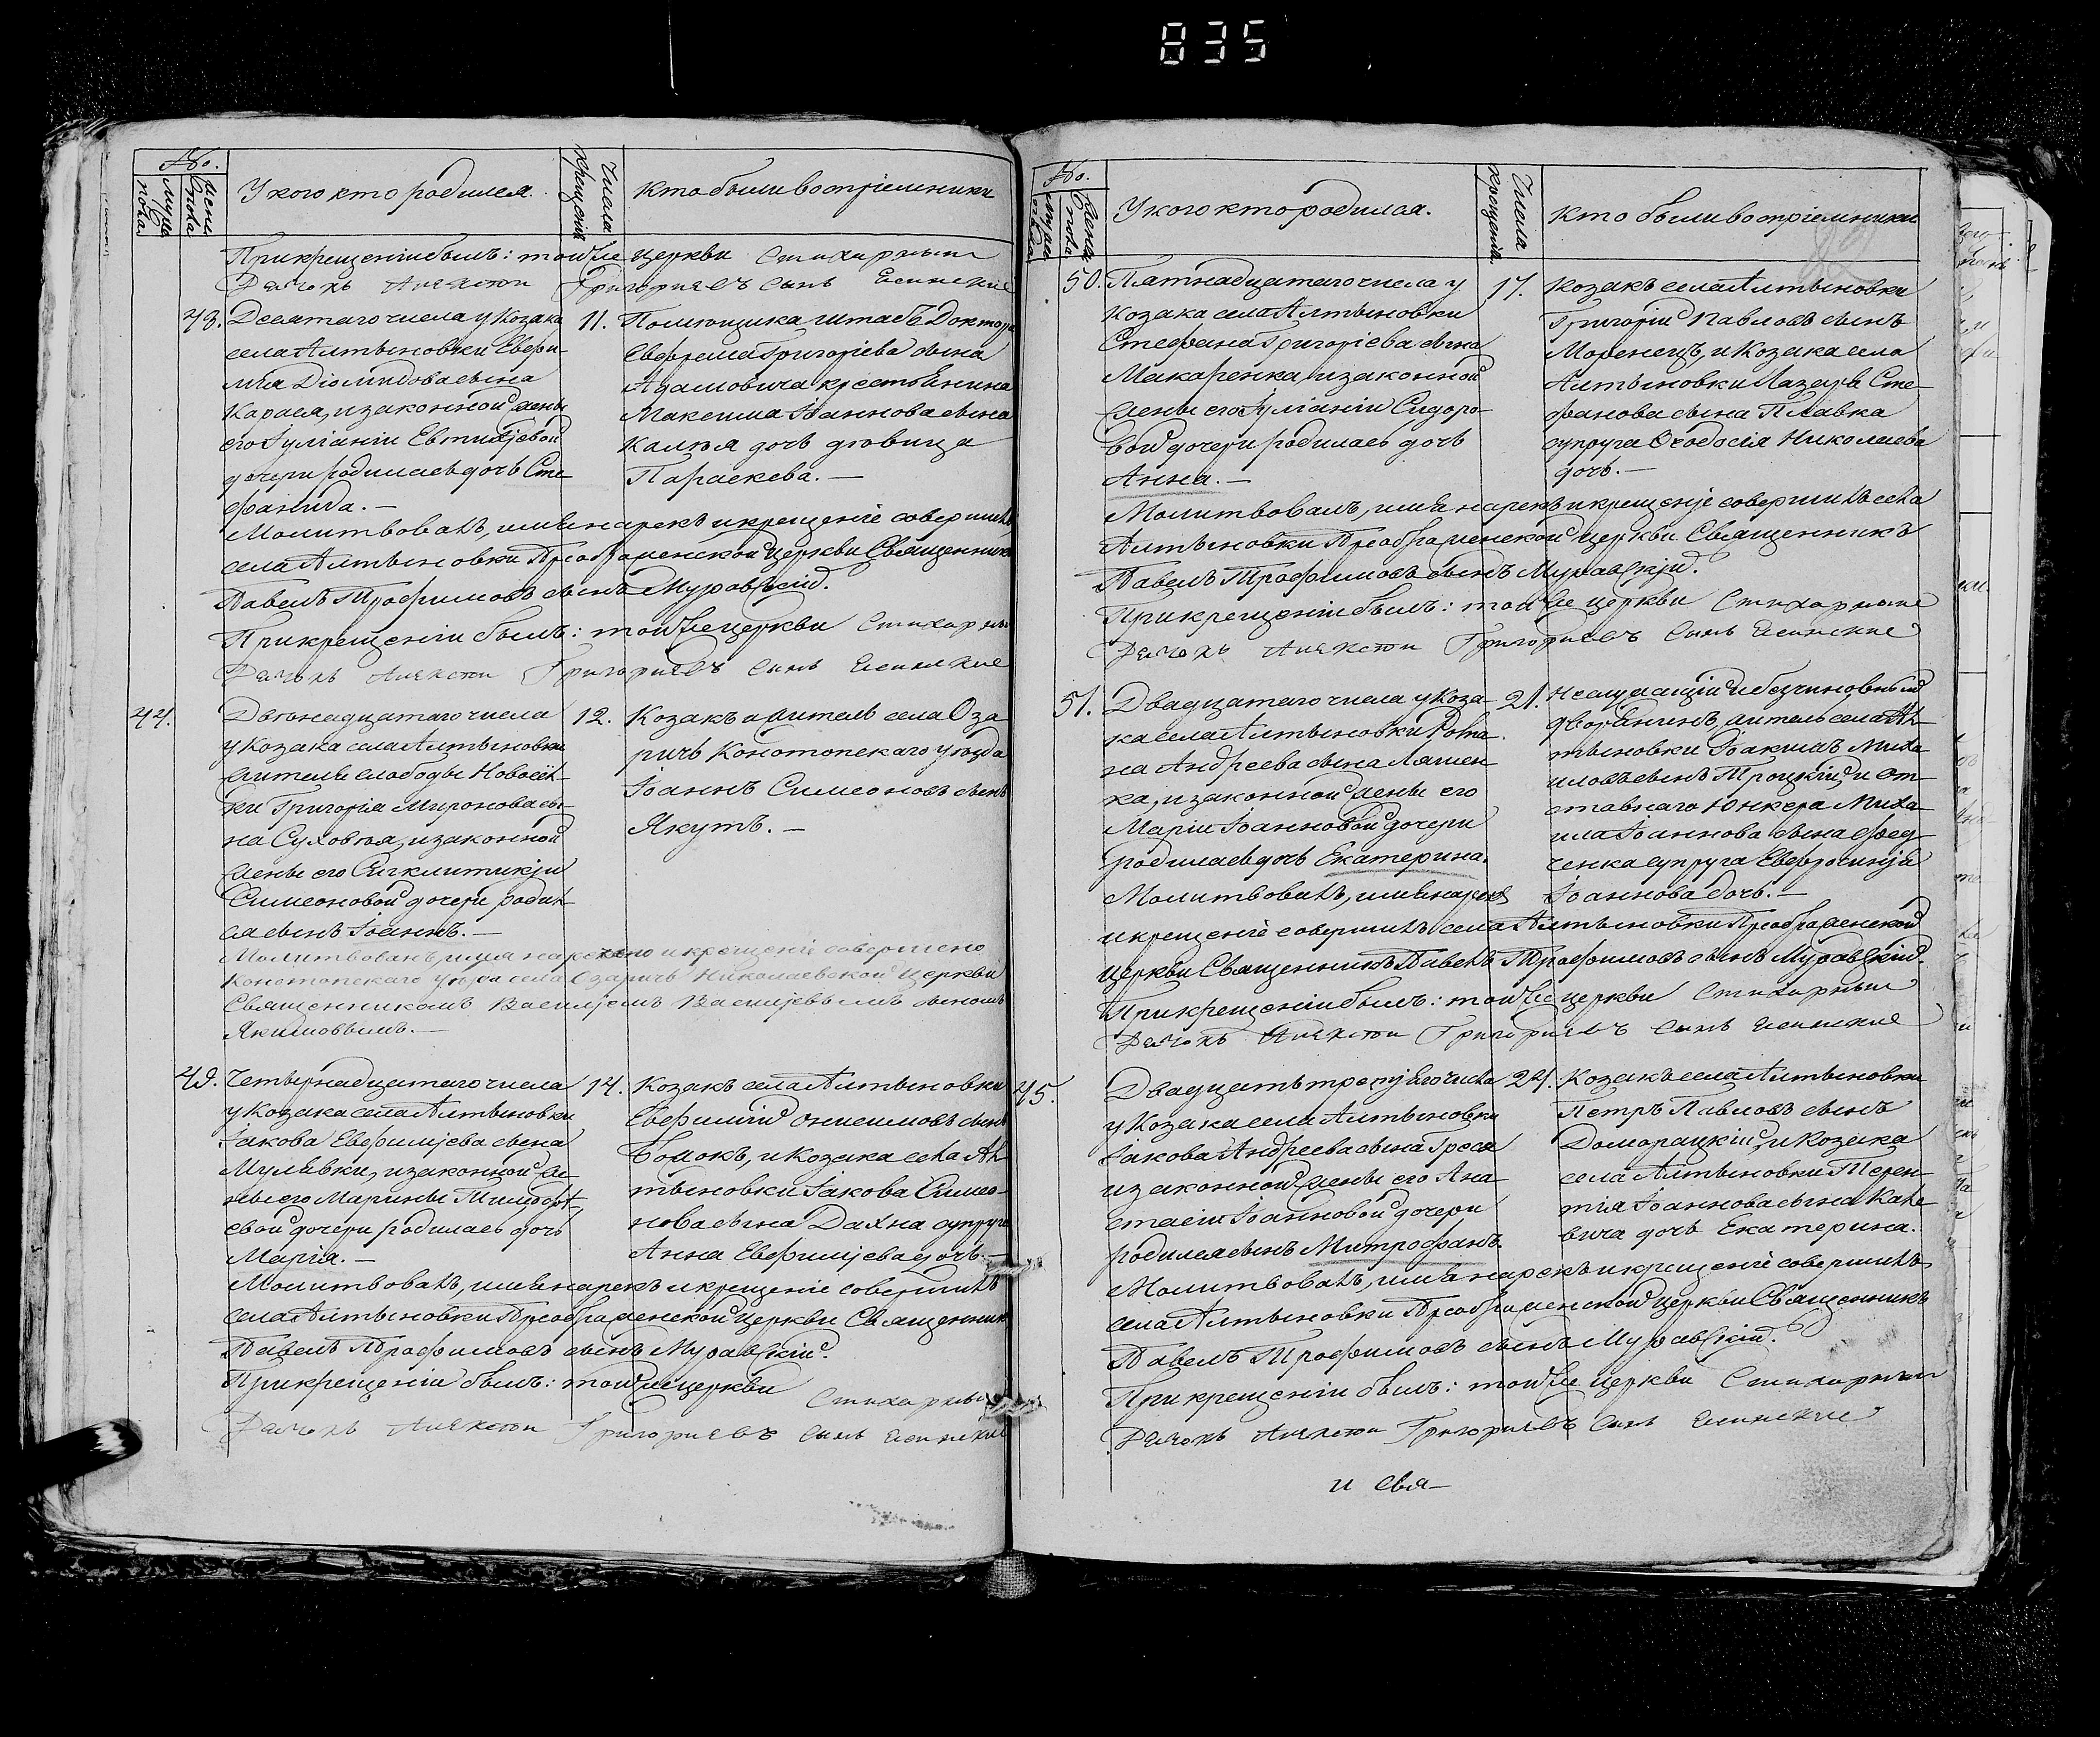 835
№.
Муже
ска
Женс
ска
У кого кто родился.
Числа
крещенія
Кто были воспріемники
При крещеніи былъ: той же церкви Стихарный
Дячокъ Алексѣй Григориевъ сынъ
48. Десятаго числа у Козака
села Алтыновки Евфи-
мія Діомидова сына
Карася, и законной жены
его Іуліаніи Евтихіевой
дочери родилась дочь Сте
фанида. —
11. Помѣщика штабъ Доктора
Евфрема Григоріева сына
Адамовича крестьянина
Максима Іоаннова сына
дочь дѣвица
Параскева. —
Молитвовалъ, имя нарекъ и крещеніе совершилъ
села Алтыновки Преображенской церкви Священникъ
Павелъ Трофимовъ сынъ Муравскій.
При крещеніи былъ: той же церкви Стихарный
Дячокъ Алексѣй Григориевъ сынъ
44.
Двѣнадцатаго числа
у Козака села Алтыновки
жителя слободы Новосел-
ки Григорія Миронова сы-
на Суховѣя, и законной
жены его Сигклитикіи
Симеоновой дочери родил-
ся сынъ Іоаннъ. —
12. Козакъ и житель села Оза
ричъ Конотопскаго уѣзда
Іоаннъ Симеоновъ сынъ
Якутъ. —
Молитвованъ, имя наречено и крещеніе совершено
Конотопскаго уѣзда села Озаричъ Николаевской церкви
Священникомъ Василіемъ Василіевымъ сыномъ
Якимовымъ. —
49. Четырнадцатаго числа
у Козака села Алтыновки
Іакова Евфиміева сына
Мулявки, и законной же-
ны его Марины Тимофе-
евой дочери родилась дочь
Марія. —
14. Козакъ села Алтыновки
Евфимій Онисимовъ сынъ
и Козака села Ал
тыновки Іакова Симео-
нова сына Дахна супруга
Анна Евфиміева дочь. —
Молитвовалъ, имя нарекъ и крещеніе совершилъ
села Алтыновки Преображенской церкви Священникъ
Павелъ Трофимовъ сынъ Муравскій.
При крещеніи былъ: той же церкви Стихарный
Дячокъ Алексѣй Григориевъ сынъ
№.
Муже
ска
Женс
ска
У кого кто родился.
Числа
крещенія.
Кто были воспріемники
50. Пятнадцатаго числа у
Козака села Алтыновки
Стефана Григоріева сына
Макаренка, и законной
жены его Іуліаніи Сидоро-
вой дочери родилась дочь
Анна. —
17. Козакъ села Алтыновки
Григорій Павловъ сынъ
Моренецъ, и Козака села
Алтыновки Лазаря Сте-
фанова сына Плавка
супруга Ѳеодосія Николаева
дочь. —
Молитвовалъ, имя нарекъ и крещеніе совершилъ села
Алтыновки Преображенской церкви Священникъ
Павелъ Трофимовъ сынъ Муравскій.
При крещеніи былъ: той же церкви Стихарный
Дячокъ Алексѣй Григориевъ сынъ
51. Двадцатаго числа у Коза-
ка села Алтыновки Рома-
на Андреева сына Ляшен
ка, и законной жены его
Маріи Іоанновой дочери
родилась дочь Екатерина.
21. Неслужащій и безчиновный
дворянинъ, житель села Ал-
тыновки Іоакимъ Миха
иловъ сынъ Троцкій, и от-
ставнаго Юнкера Миха-
ила Іоаннова сына Фед-
ченка супруга Евфросинія
Іоаннова дочь. —
Молитвовалъ, имя нарекъ
и крещеніе совершилъ села Алтыновки Преображенской
церкви Священникъ Павелъ Трофимовъ сынъ Муравскій.
При крещеніи былъ: той же церкви Стихарный
Дячокъ Алексѣй Григориевъ сынъ
45.
Двадцать третьяго числа
у Козака села Алтыновки
Іакова Андреева сына
и законной жены его Ана-
стасіи Іоанновой дочери
родился сынъ Митрофанъ.
24. Козакъ села Алтыновки
Петръ Павловъ сынъ
Доморацкій, и Козака
села Алтыновки Терен-
тія Іоаннова сына
вича дочь Екатерина.
Молитвовалъ, имя нарекъ и крещеніе совершилъ
села Алтыновки Преображенской церкви Священникъ
Павелъ Трофимовъ сынъ Муравскій.
При крещеніи былъ: той же церкви Стихарный
Дячокъ Алексѣй Григориевъ сынъ
и свя-